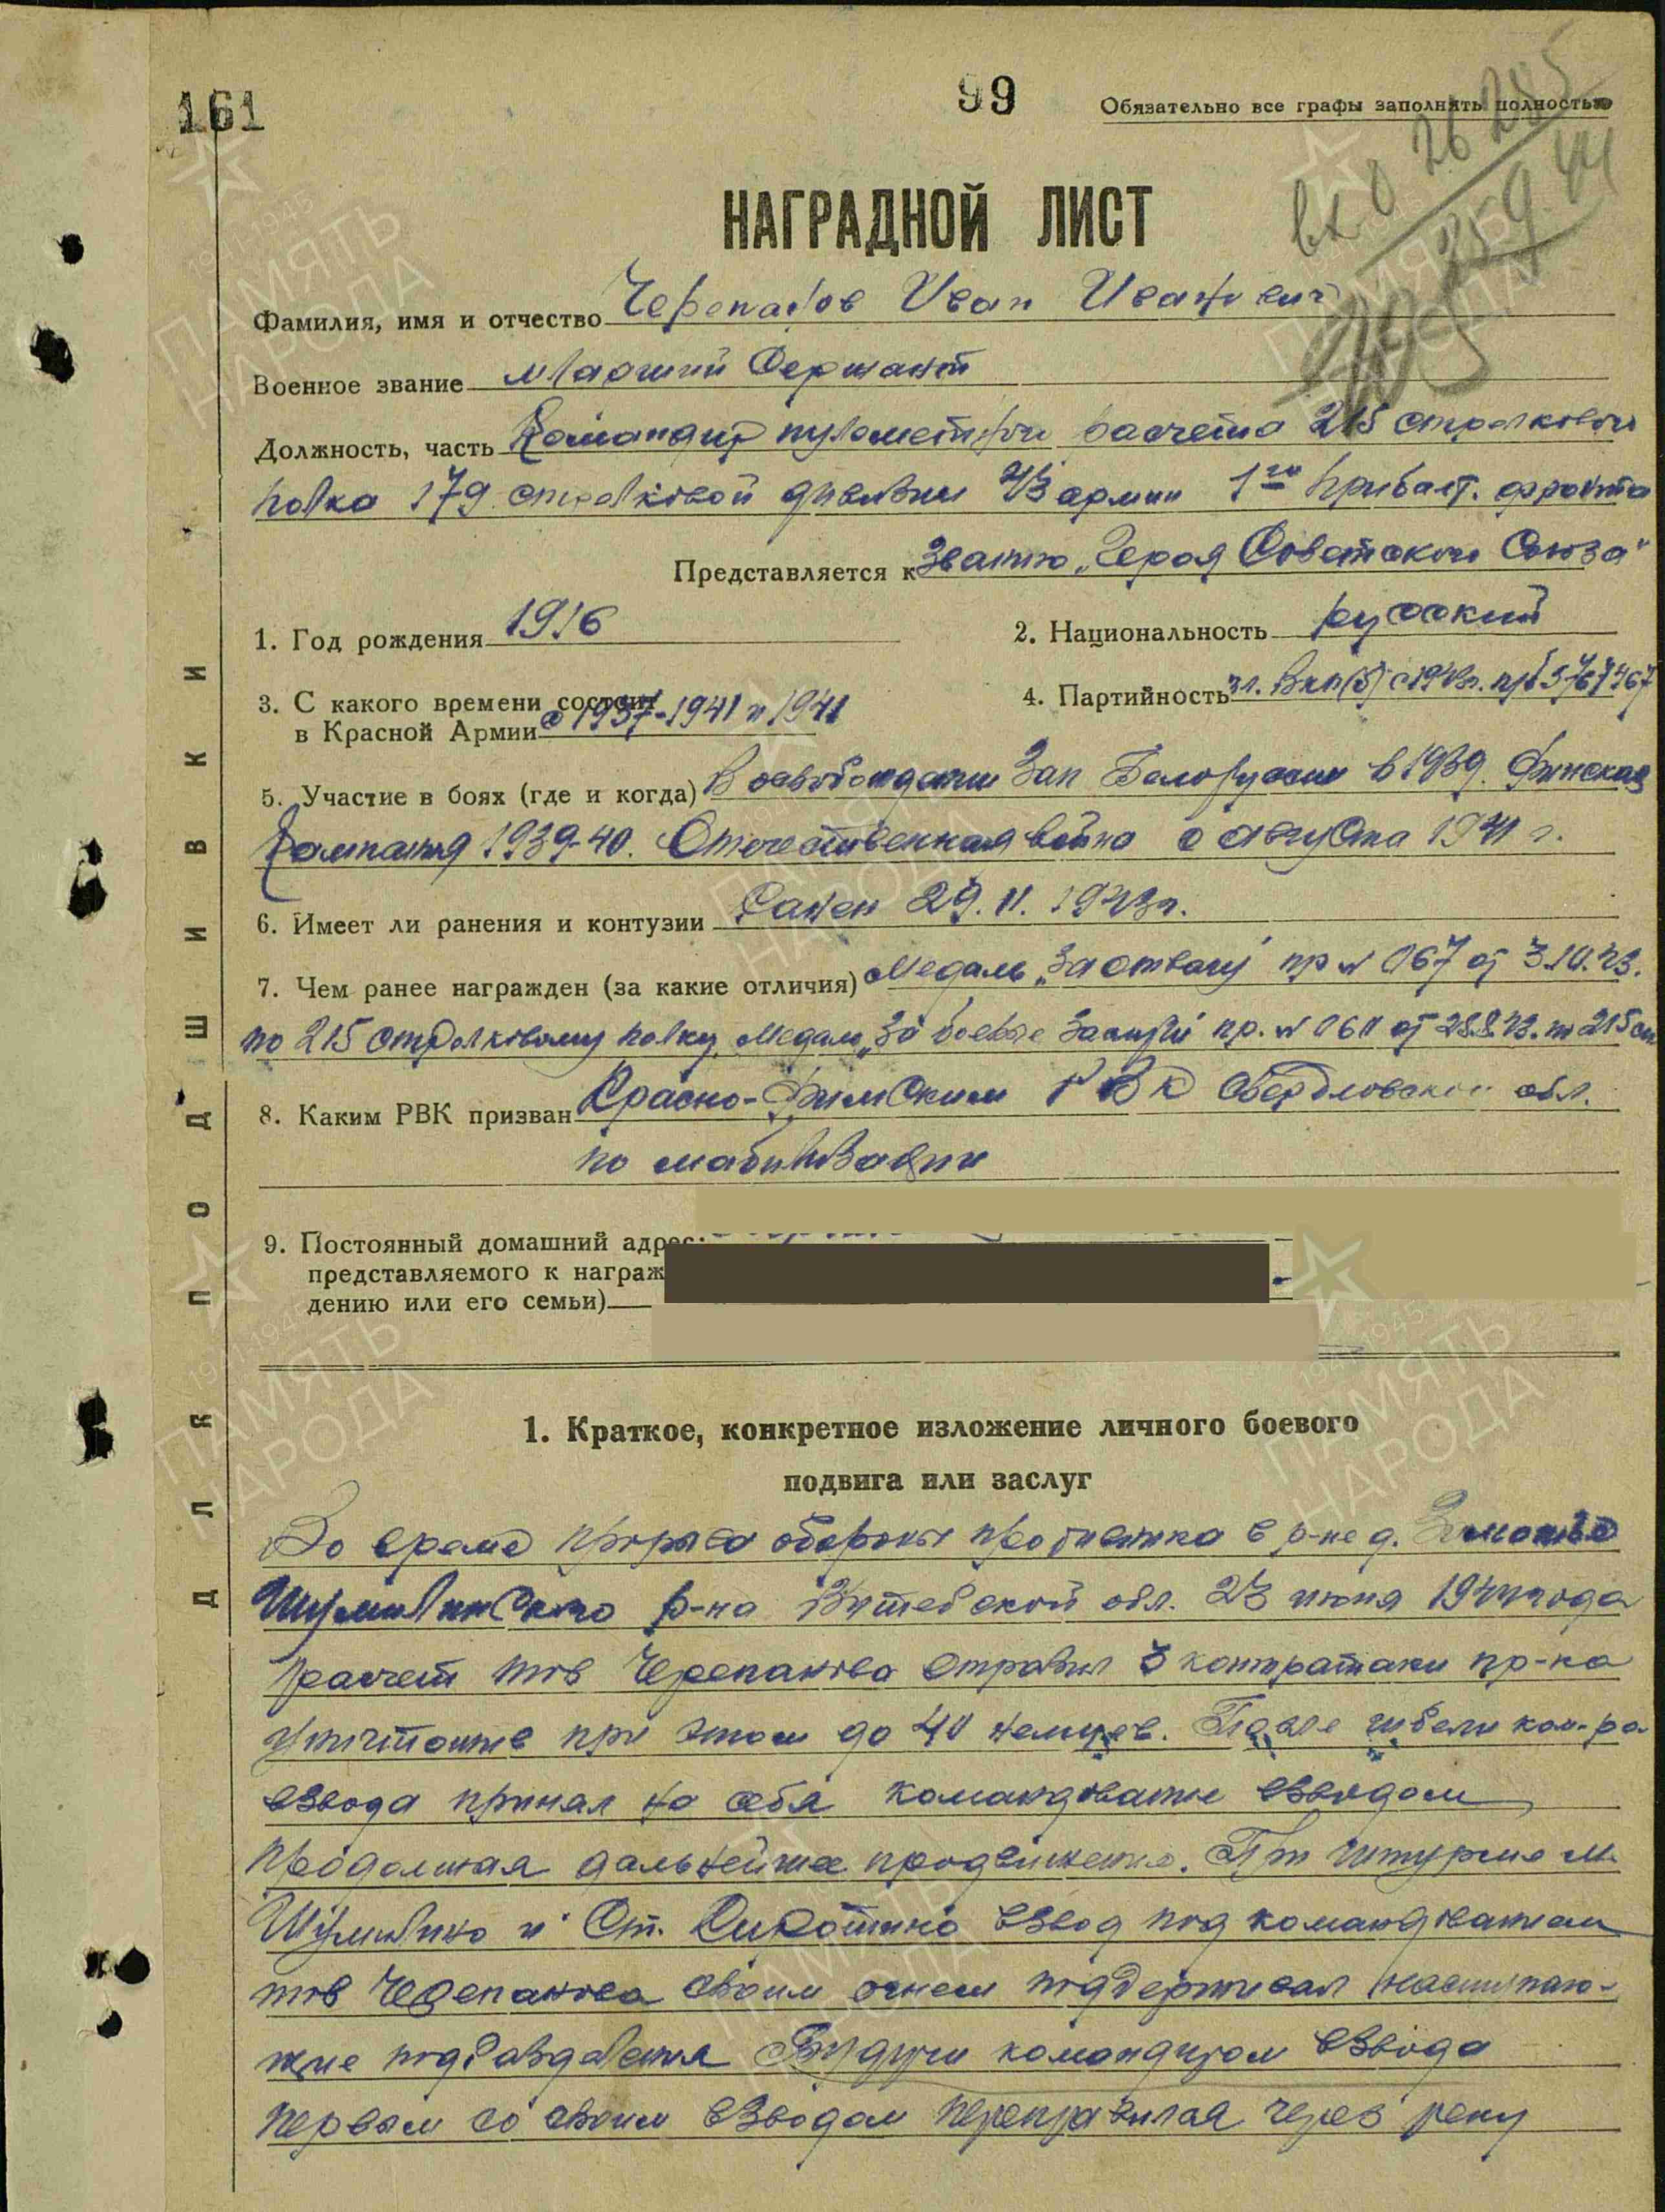 161
99
Обязательно все графы заполнять полностью
вх 0 26205
НАГРАДНОЙ ЛИСТ
Фамилия, имя и отчество Черепанов Иван Иванович
Военное звание младший Сержант
Должность, часть Командир пулеметной расчета 215 стрелкового
полка 179 стрелковой дивизии 43 армии 1го Прибалт. фронта
Представляется к Званию „Героя Советского Союза"
1. Год рождения 1916
2. Национальность русский
3. С какого времени состоит
в Красной Армии с 1937-1941 и 1941
4. Партийность чл. Вкп(б) с 1943г.
5. Участие в боях (где и когда) В освобождении Зап Белоруссии в 1939. Финская
Кампания 1939-40. Отечественная война с августа 1941 г.
6. Имеет ли ранения и контузии Ранен 29.11.1943г.
7. Чем ранее награжден (за какие отличия) Медаль „За отвагу" пр № 067 от 3.10.43.
по 215 стрелковому полку, Медаль „За боевые Заслуги" пр. № 060 от 28.8.43. по 215 сп
8. Каким РВК призван Красно-Уфимским РВК Свердловской обл.
по мабилизации
9. Постоянный домашний адрес:
представляемого к награж
дению или его семьи)
1. Краткое, конкретное изложение личного боевого
подвига или заслуг
Во время прорыва обороны противника в р-не д.
Шумилинского р-на Витебской обл. 23 июня 1944 года
расчет тов Черепанова отразил 3 контратаки пр-ка
уничтожив при этом до 40 немцев. После гибели ком-ра
взвода принял на себя командование взводом
продолжая дальнейшее продвижение. При штурме м.
Шумилино и Ст. Сиротино взвод под командованием
тов Черепанова своим огнем поддерживал наступаю-
щие подразделения Будучи командиром взвода
первым со своим взводом переправился через реку
ДЛЯ ПОДШИВКИ
1941-1945
ПАМЯТЬ
НАРОДА